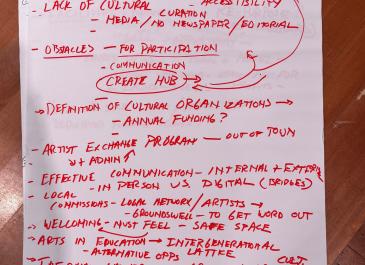 - LACK OF CULTURAL - ACCESSIBILITY
CURATION
- MEDIA/NO NEWSPAPER/EDITORIAL
- OBSTACLES - FOR PARTICIPATION
- COMMUNICATION
CREATE HUB
→ DEFINITION OF CULTURAL ORGANIZATIONS →
- ANNUAL FUNDING?
- ARTIST EXCHANGE PROGRAM - OUT OF TOWN
+ ADMIN
- EFFECTIVE COMMUNICATION - INTERNAL + EXTERNAL
- LOCAL - IN PERSON VS. DIGITAL (BRIDGES)
COMMISSIONS - LOCAL NETWORK/ARTISTS →
- GROUNDSWELL - TO GET WORD OUT
- WELCOMING - MUST FEEL - SAFE SPACE
- ARTS IN EDUCATION → INTERGENERATIONAL
- ALTERNATIVE OPPS LATTICE